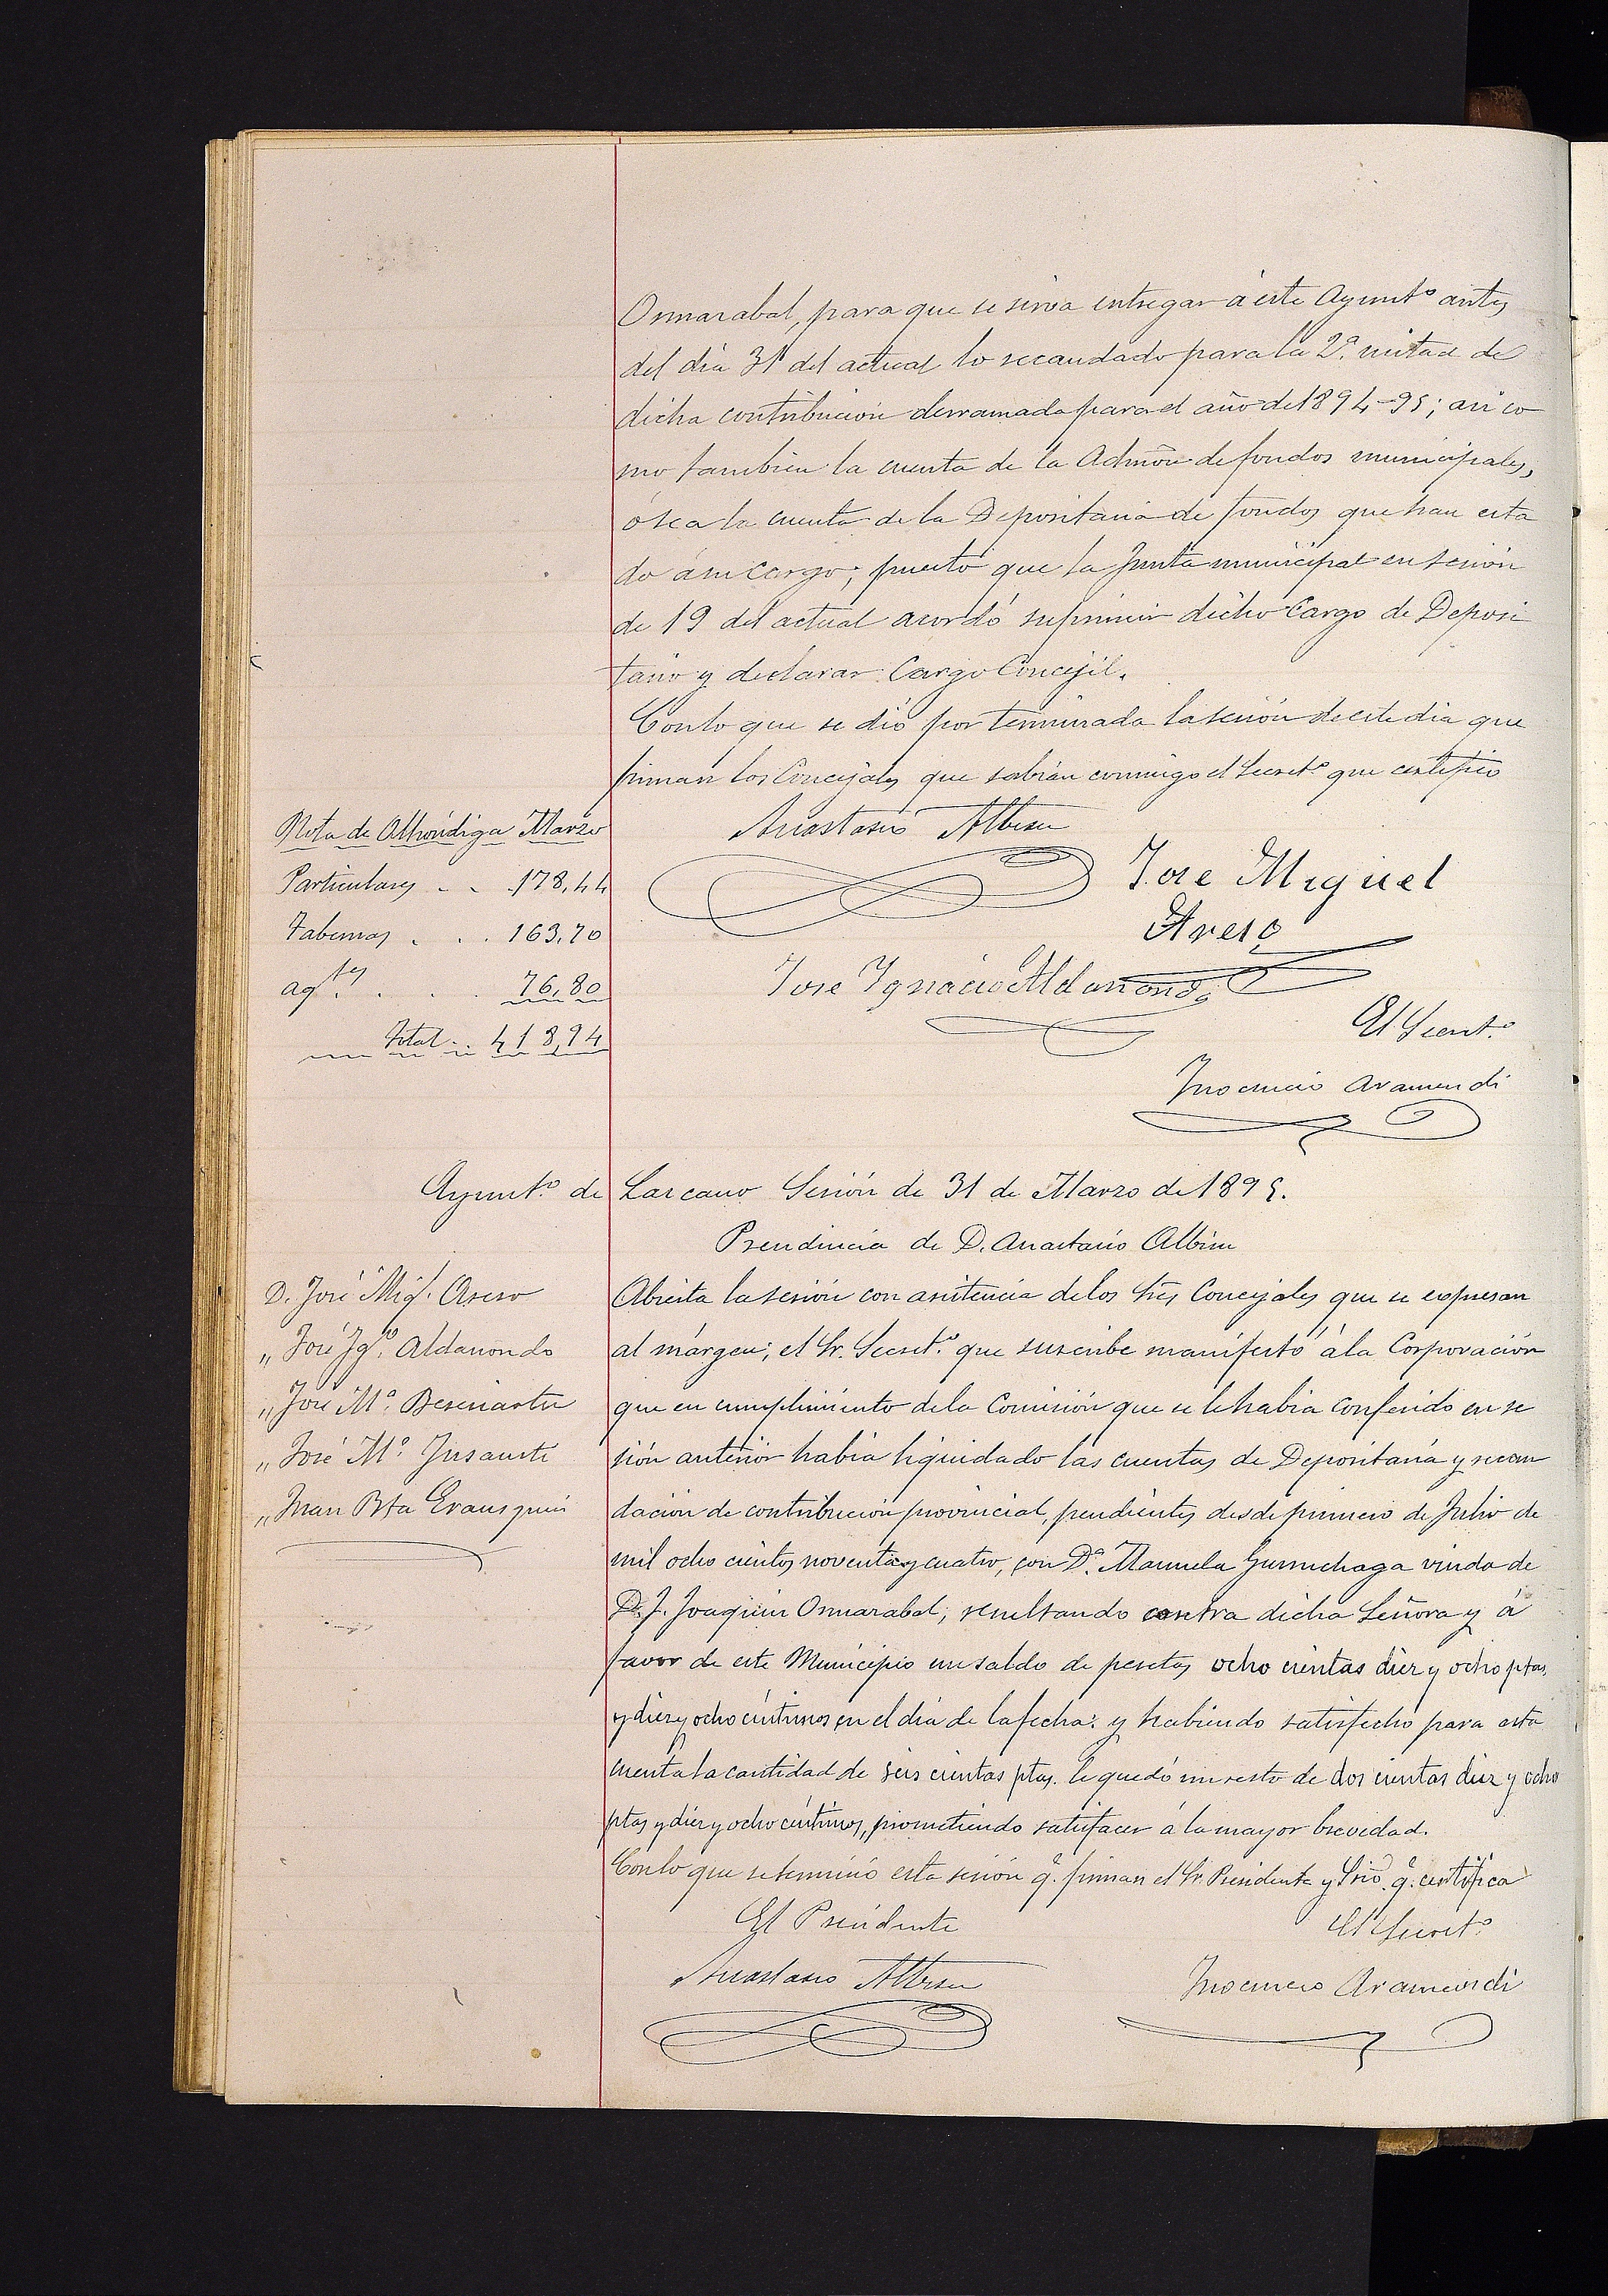 Osinarabal, para que se sirva entregar á éste Ayunt.º antes
del dia 31 del actual lo recaudado para la 2.ª mitad de
dicha contribución derramada para el año de 1894-95; asi co
mo tambien la cuenta de la Admōn de fondos municipales,
ó sea la cuenta de la Depositaria de fondos que han esta
do á su cargo; puesto que la Junta municipal en sesión
de 19 del actual acordó suprimir dicho Cargo de Deposi
tario y declarar Cargo Concejil.
Con lo que se dió por terminada la sesión de este dia que
firman los Concejales que sabian conmigo el Secret.º que certifico
Anastasio Albisu
Jose Miguel
Areso
Jose Ignacio Aldanondo
El Secret.º
Inocencio Aramendi
Nota de Alhóndiga Marzo
Particulares . . . 178,44
Tabernas . . . 163,70
ag.tes . . . . 76,80
Total . . 418,94
Ayunt.º de Lazcano Sesión de 31 de Marzo de 1895.
Presidencia de D. Anastasio Albisu
D. José Mig.l Areso
„ José Ig.º Aldanondo
„ José M.ª
„ José M.ª Insausti
„ Juan Bta Erausquin
Abierta la sesión con asistencia de los Sres Concejales que se expresan
al márgen; el Sr. Secret.º que suscribe manifestó á la Corporación
que en cumplimiento de la Comisión que se le habia conferido en se
sión anterior habia liquidado las cuentas de Depositaria y recau
dación de contribución provincial, pendientes desde primero de Julio de
mil ocho cientos noventa y cuatro, con D.ª Manuela Gurruchaga viuda de
D. J. Joaquin Osinarabal, resultando contra dicha Señora y á
favor de este Municipio un saldo de pesetas ocho cientas diez y ocho ptas.
y diez y ocho céntimos en el dia de la fecha: y habiendo satisfecho para esta
cuenta la cantidad de seis cientas ptas. le quedó un resto de dos cientas diez y ocho
ptas y diez y ocho céntimos, prometiendo satisfacer á la mayor brevedad.
Con lo que se terminó esta sesión q.e firman el Sr. Presidente y Srio. q.e certifica
El Presidente
El Secret.º
Anastasio Albisu
Inocencio Aramendi